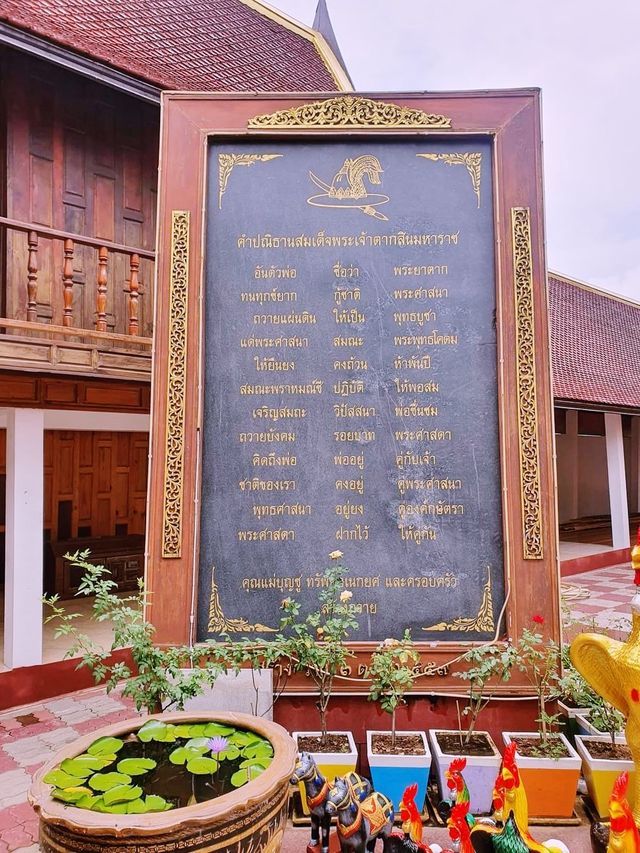 คำปณิธานสมเด็จพระเจ้าตากสินมหาราช
อันตัวพ่อ ชื่อว่า พระยาตาก
ทนทุกข์ยาก กู้ชาติ พระศาสนา
ถวายแผ่นดิน ให้เป็น พุทธบูชา
แด่พระศาสนา สมณะ พระพุทธโคดม
ให้ยืนยง คงถ้วน ห้าพันปี
สมณะพราหมณ์ชี ปฏิบัติ ให้พอสม
เจริญสมถะ วิปัสสนา พ่อชื่นชม
ถวายบังคม รอยบาท พระศาสดา
คิดถึงพ่อ พ่ออยู่ คู่กับเจ้า
ชาติของเรา คงอยู่ คู่พระศาสนา
พุทธศาสนา อยู่ยง คู่องค์กษัตรา
พระศาสดา ฝากไว้ ให้คู่กัน
คุณแม่บุญชู และครอบครัว